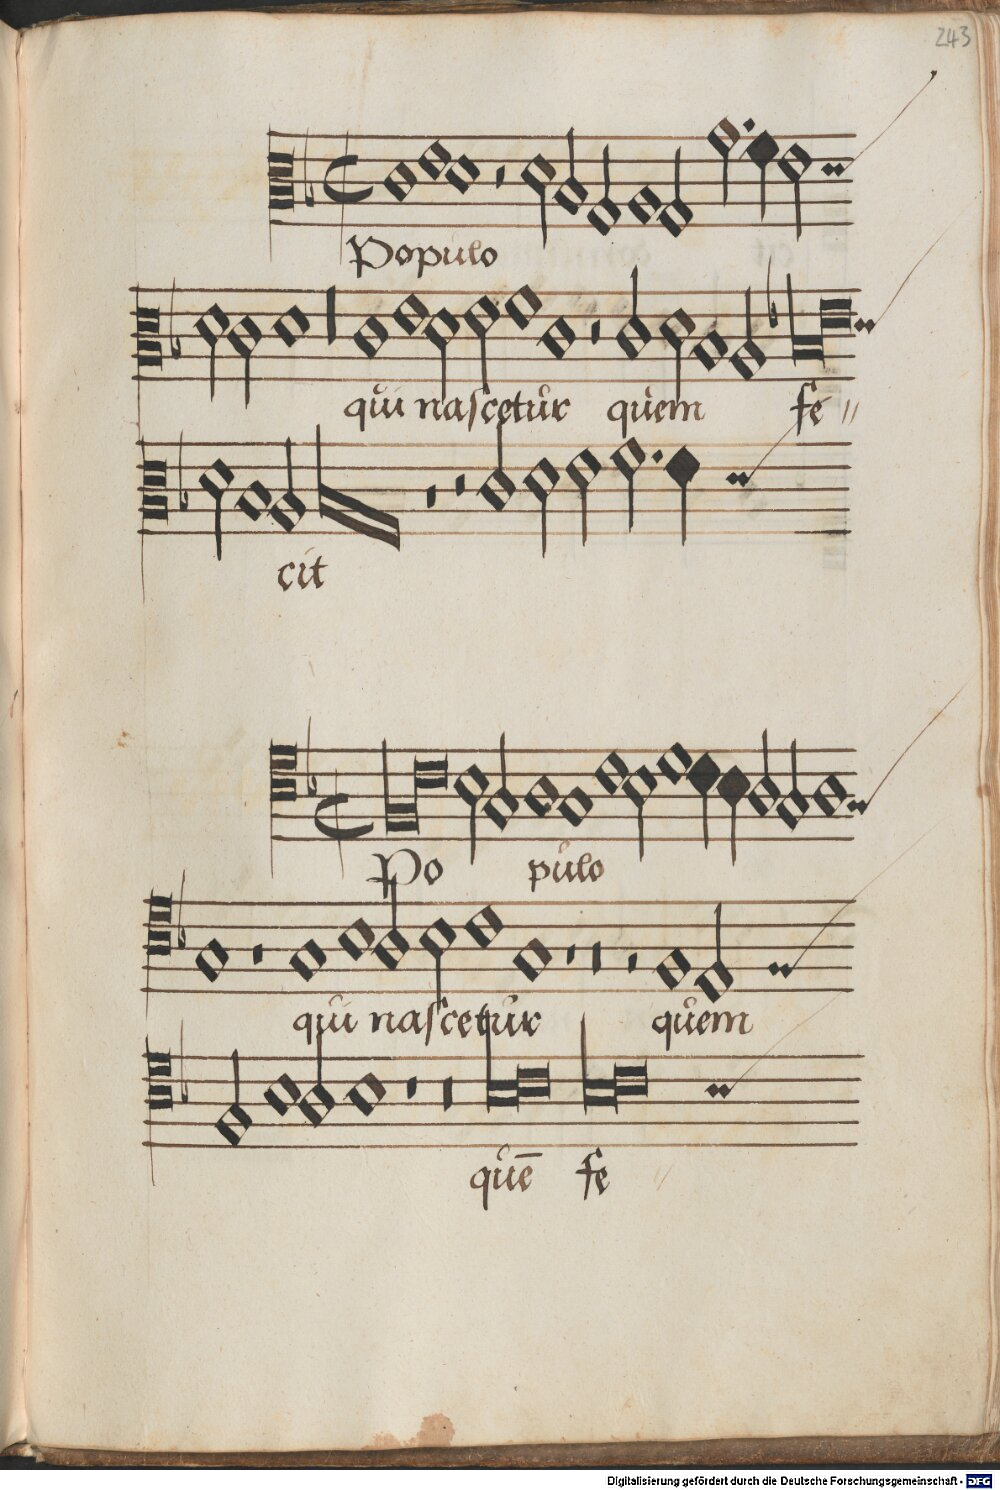 243
Populo
qui nascetur quem fe
cit
Po pulo
qui nascetur quem
quē fe
Digitalisierung gefördert durch die Deutsche Forschungsgemeinschaft - DFG